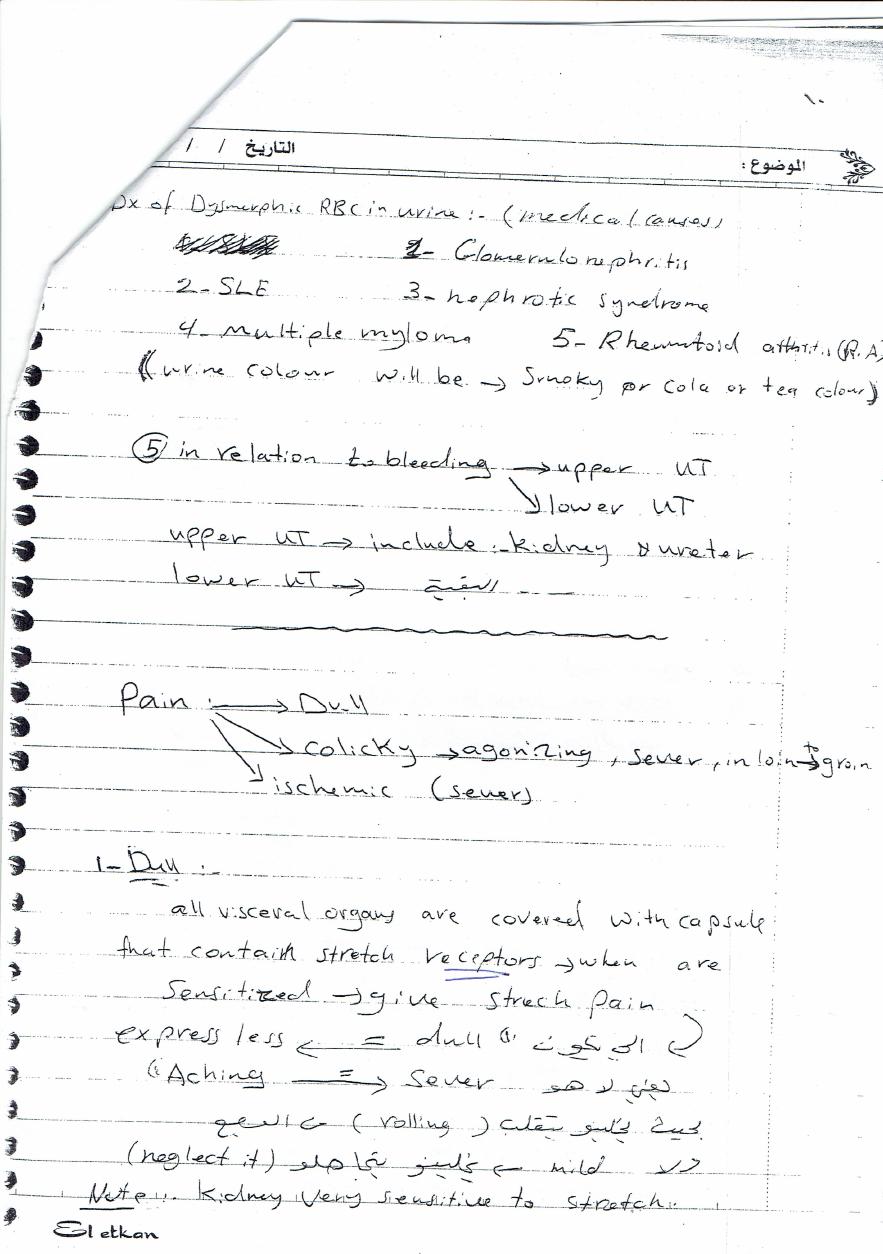 ١٠
التاريخ / /
الموضوع :
Dx of Dysmorphic RBC in urine :- (medical causes)
1- Glomerulonephritis
2- SLE 3- nephrotic syndrome
4- Multiple myloma 5- Rheumtoid arthritis (R.A)
(urine colour will be → Smoky or cola or tea colour)
⑤ in relation to bleeding → upper UT
↘ lower UT
upper UT → include :- kidney & ureter
lower UT → البقية ---
Pain :- → Dull
↘ colicky → agonizing , sever , in loin to → groin
↘ ischemic (sever)
1- Dull :-
all visceral organs are covered with capsule
that contain stretch receptors → when are
Sensitized → give strech pain
الي تكون dull = ← express less
يعني لا هو Sever = → Aching
بحيث يخليو يتقلب (rolling) من الوجع
ولا mild ← يخلينو يتجاهلو (neglect it)
Note :. Kidney very sensitive to stretch.
El etkan